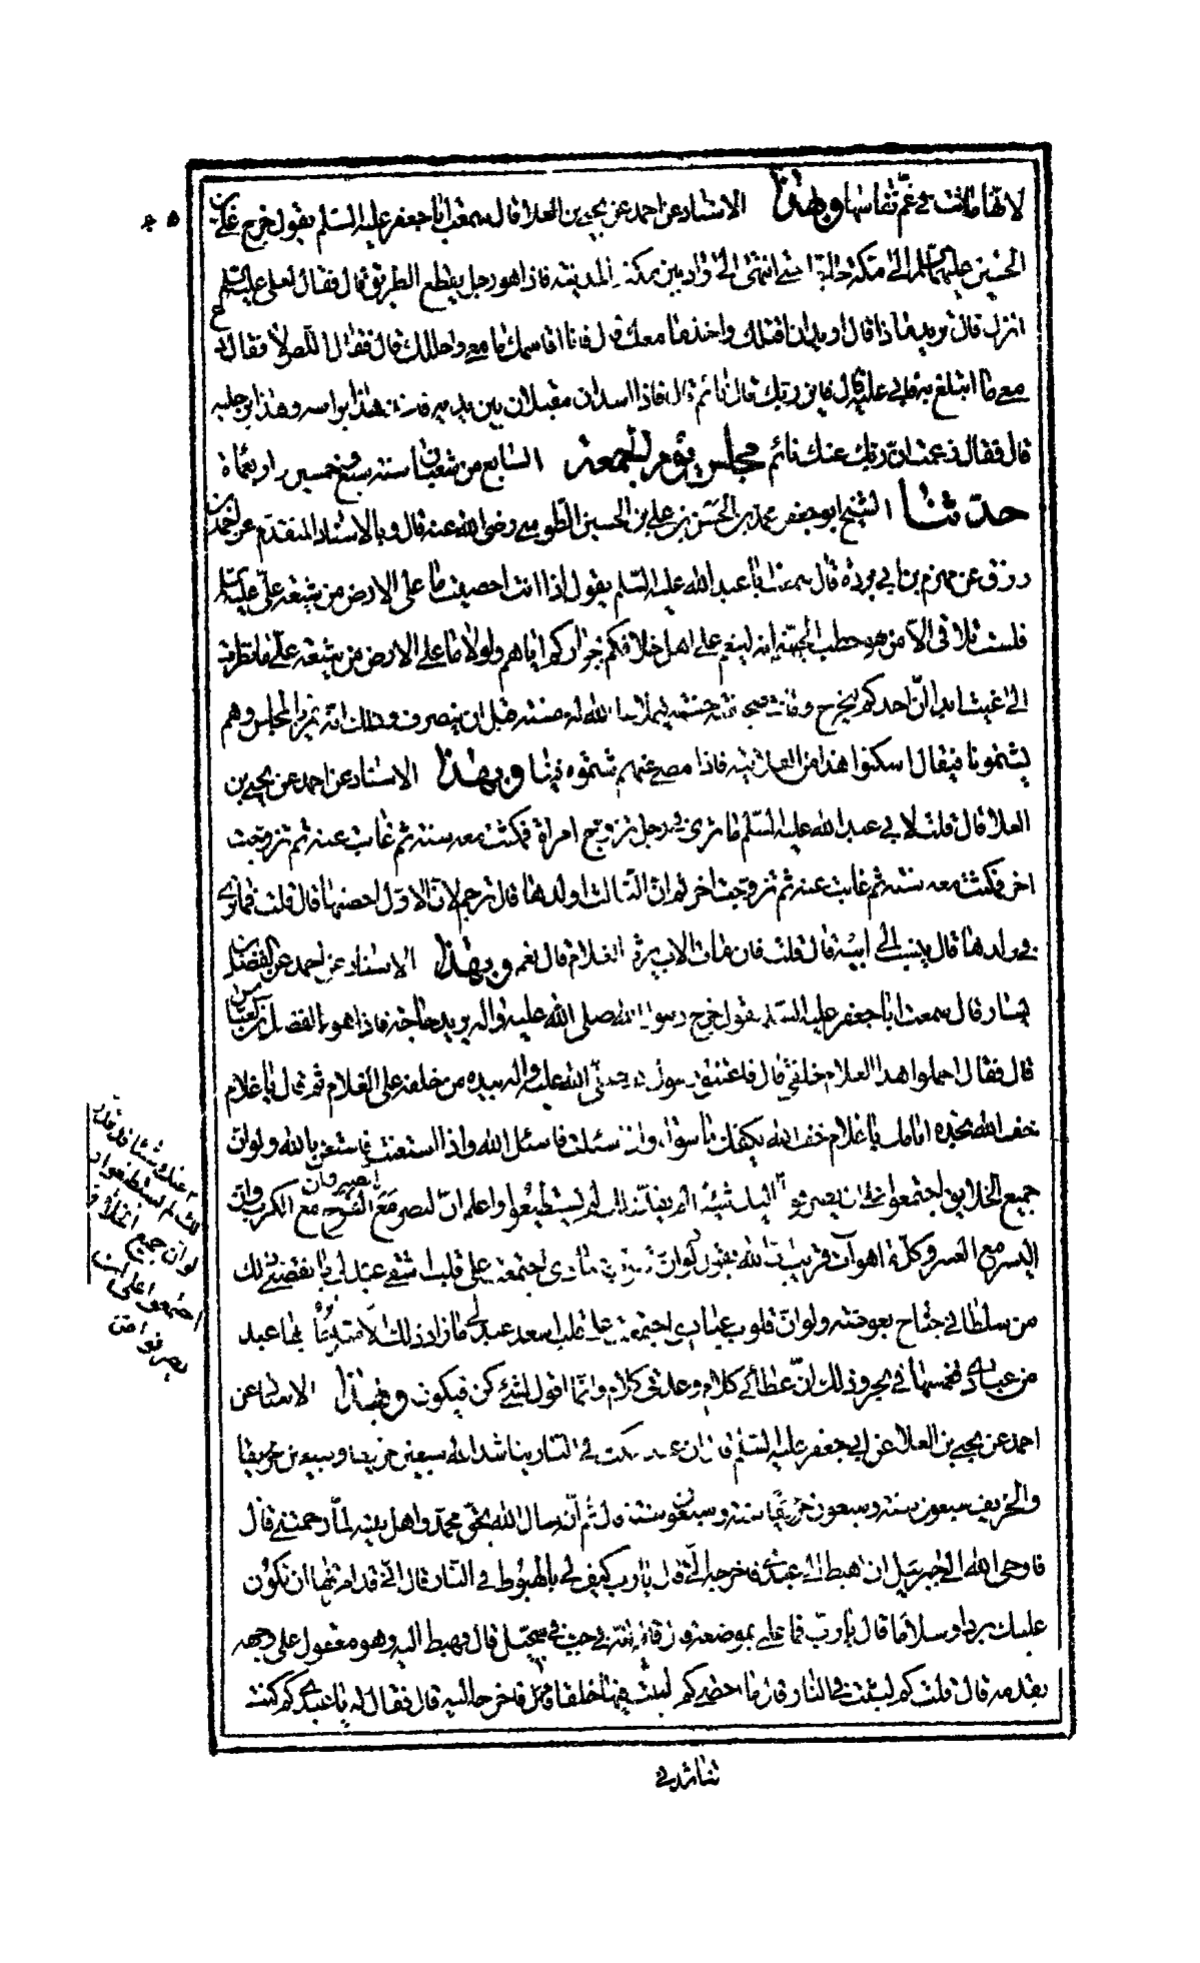 لانها ماتت في غم نفاسها وبهذا الاسناد عن احمد عن يحيى بن العلا قال سمعت ابا جعفر عليه السلم يقول خرج علي بن
الحسين عليهما السلم الى مكة حاجا حتى انتهى الى واد بين مكة والمدينة فاذا هو رجل يقطع الطريق قال فقال لعلي عليه السلم
انزل قال تريد ماذا قال اريد ان اقتلك واخذ ما معك قال فانا اقاسمك ما معي واحللك قال فقال اللص لا فقال
معي ما اتبلغ به فابى عليه قال فاين ربك قال نائم قال فاذا اسدان مقبلان بين يديه فاخذ هذا براسه وهذا برجليه
قال فقال زعمت ان ربك عنك نائم مجلس يوم الجمعة السابع من شعبان سنة سبع وخمسين واربعماة
حدثنا الشيخ ابو جعفر محمد بن الحسن بن علي بن الحسين الطوسي رضي الله عنه قال وبالاسناد المتقدم عن احمد بن
رزق عن مهزم بن ابي بردة قال سمعت ابا عبد الله عليه السلم يقول اذا انت احصيت ما على الارض من شيعة علي عليه السلم
فلست تلاقي الا من هو حطب لجهنم انه لينعم على اهل خلافكم بجواركم اياهم ولولا ما على الارض من شيعة علي ما نظرت
الى غيث ابدا ان احدكم ليخرج وما في صحيفته حسنة فيملاها الله له حسنة قبل ان ينصرف وذلك انه يمر بالمجلس وهم
يشتمونا فيقال اسكتوا هذا من الفلانية فاذا مضى عنهم شتموه فينا وبهذا الاسناد عن احمد عن يحيى بن
العلا قال قلت لابي عبد الله عليه السلم ما ترى في رجل تزوج امراة فمكثت معه سنة ثم غابت عنه ثم تزوجت
اخر فمكثت معه سنة ثم غابت عنه ثم تزوجت اخر ثم ان الثالث اولدها قال ترجم لان الاول احصنها قال قلت فما ترى
في ولدها قال ينسب الى ابيه قال قلت فان مات الاب يرثه الغلام قال نعم وبهذا الاسناد عن احمد عن الفضل بن
يسار قال سمعت ابا جعفر عليه السلم يقول خرج رسول الله صلى الله عليه واله يريد حاجة فاذا هو بالفضل بن العباس
قال فقال احملوا هذا الغلام خلفي قال فاعتنق رسول الله صلى الله عليه واله بيده من خلفه على الغلام ثم قال يا غلام
خف الله تجده امامك يا غلام خف الله يكفك ما سواه واذا سئلت فاسئل الله واذا استعنت فاستعن بالله ولو ان
جميع الخلايق اجتمعوا على ان يصرفوا اليك شيئا لم يستطيعوا واعلم ان النصر مع الصبر وان الفرج مع الكرب وان
اليسر مع العسر وكل ما هو آت قريب ان الله يقول لو ان قلوب عبادي اجتمعت على قلب اشقى عبد لي ما نقصني ذلك
من سلطاني جناح بعوضة ولو ان قلوب عبادي اجتمعت على قلب اسعد عبد لي ما زاد ذلك
من عبادي فغمسها في بحر وذلك ان عطائي كلام وعدتي كلام وانما اقول لشئ كن فيكون وبهذا الاسناد عن
احمد عن يحيى بن العلا عن ابي جعفر عليه السلم قال ان عبدا مكث في النار يناشد الله سبعين خريفا وسبعين خريفا
والخريف سبعون سنة وسبعون خريفا سنة وسبعون سنة قال ثم انه سال الله بحق محمد واهل بيته لما رحمتني قال
فاوحى الله الى جبرئيل ان اهبط الى عبدي فاخرجه الي قال يا رب كيف لي بالهبوط في النار قال اني قد امرتها ان تكون
عليك بردا وسلاما قال يا رب فما علمي بموضعه قال انه في جب في سجيل قال وهبط اليه وهو معقول على وجهه
بقدمه قال قلت كم لبثت في النار قال ما احصي كم لبثت فيها خلقا قال فاخرجه اليه قال فقال له يا عبدي كم كنت
تناشدني
عنك شيئا قد قدر
لك لم يستطيعوا
لو ان جميع الخلائق
اجتمعوا على ان
يصرفوا